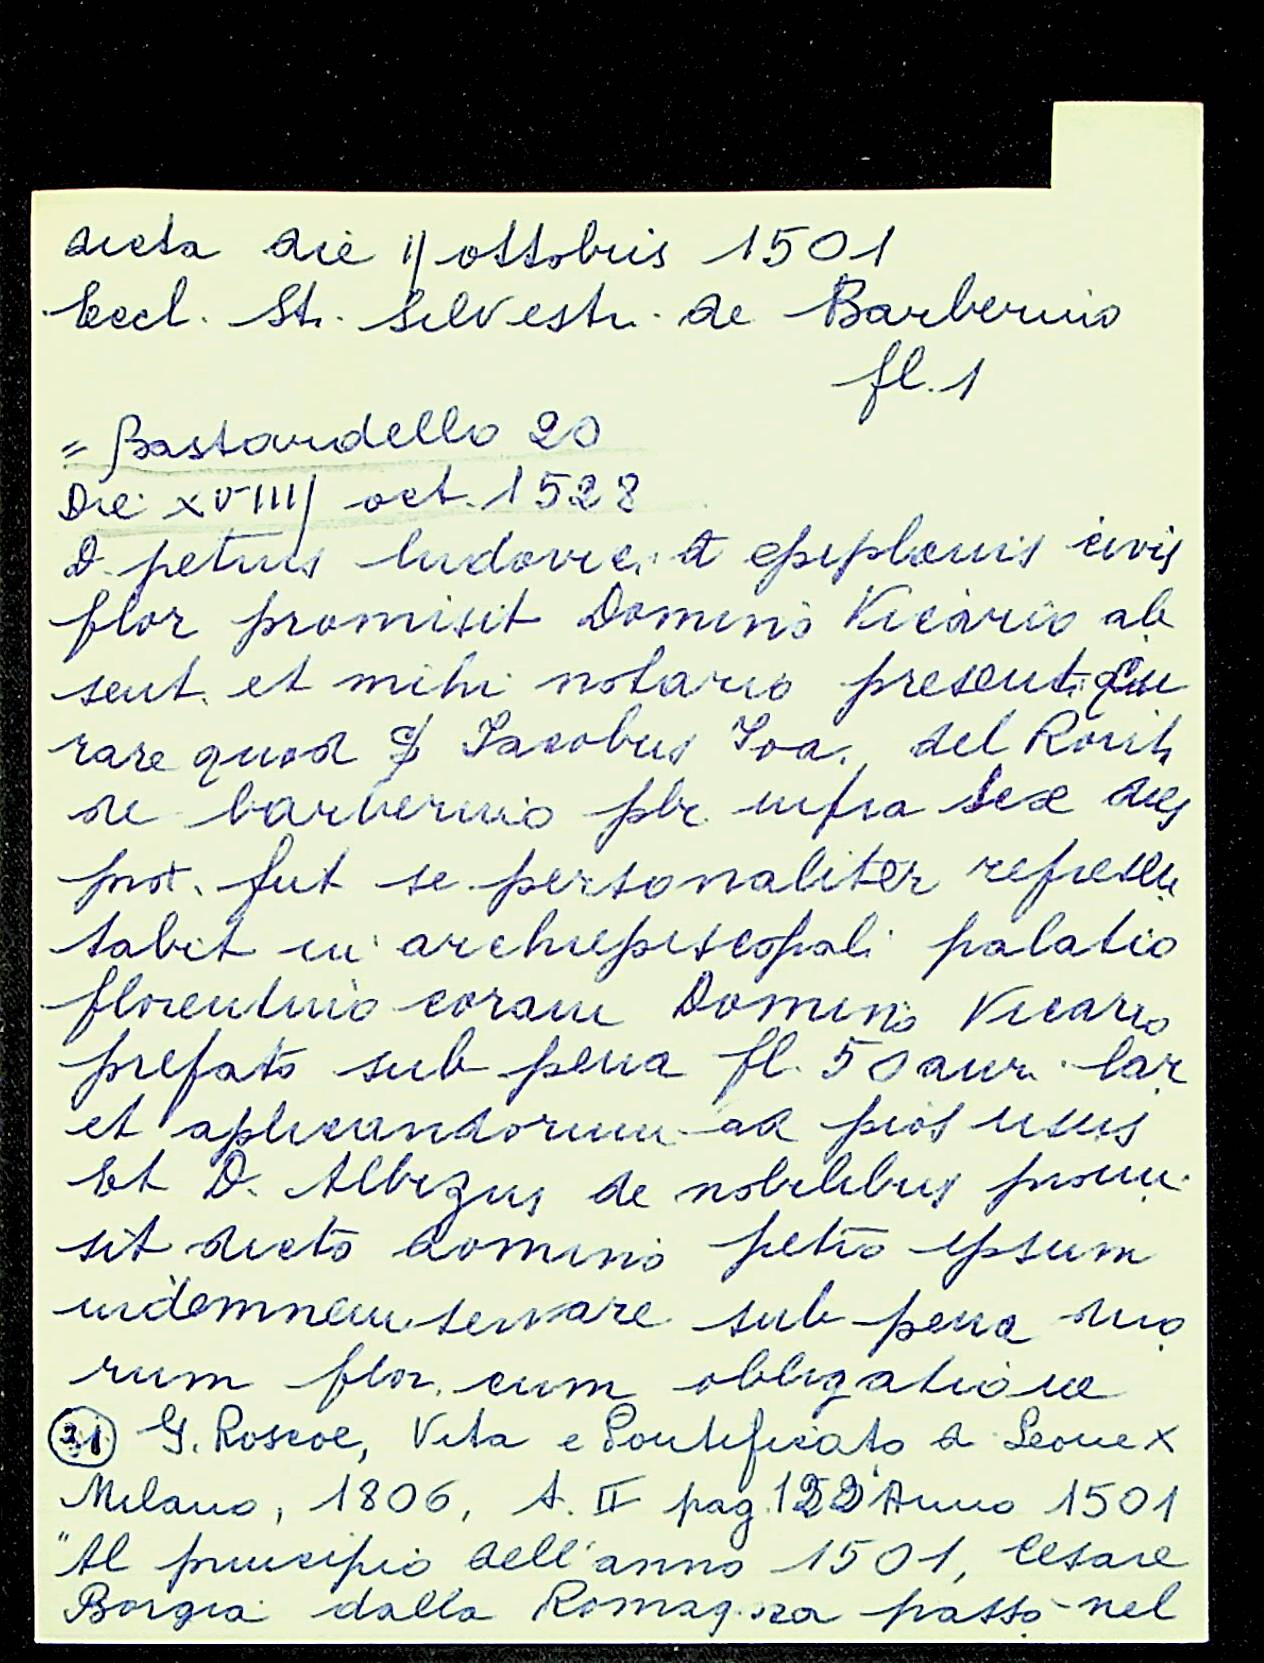 dicta die ij ottobris 1501
Eccl. Sti. Silvestri de Barberino
fl. 1
= Bastardello 20
Die XVIIIJ oct. 1528
D. petrus ludovici epiphanis civis
flor promisit Domino Vicario ab
sent. et mihi notario present. cu
rare quod Jacobus Joa. del
de barberino pbr. infra sex dies
prox. fut se personaliter represen
tabit in archiepiscopali palatio
florentino coram Domino Vicario
prefato sub pena fl. 50 aur. lar
et aplicandorum ad pios usus
Et D. Albizus de nobilibus promi
sit dicto domino petro ipsum
indemnem servare sub pena duo
rum flor. cum obligatione
31 G. Roscoe, Vita e Pontificato d Leone X
Milano, 1806, t. II pag. 122 Anno 1501
"Al principio dell'anno 1501, Cesare
Borgia dalla Romagna passò nel